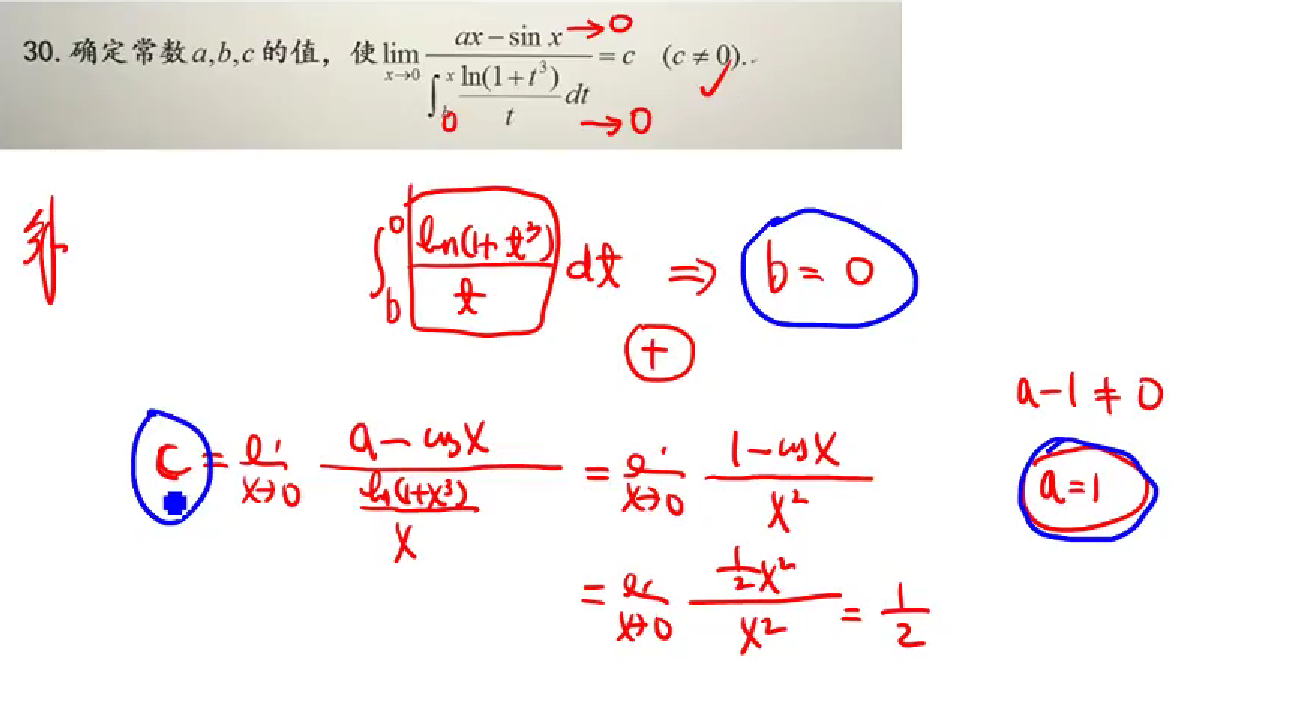 30. 确定常数 a,b,c 的值，使 lim_{x→0} (ax − sin x) / (∫_b^x ln(1+t³)/t dt) = c (c ≠ 0).
→0
0
→0
解
∫_b^0 ln(1+t³)/t dt ⇒ b = 0
+
a − 1 ≠ 0
c = li_{x→0} (a − cosx) / (ln(1+x³)/x) = li_{x→0} (1 − cosx)/x²
a = 1
= li_{x→0} (½x²)/x² = 1/2